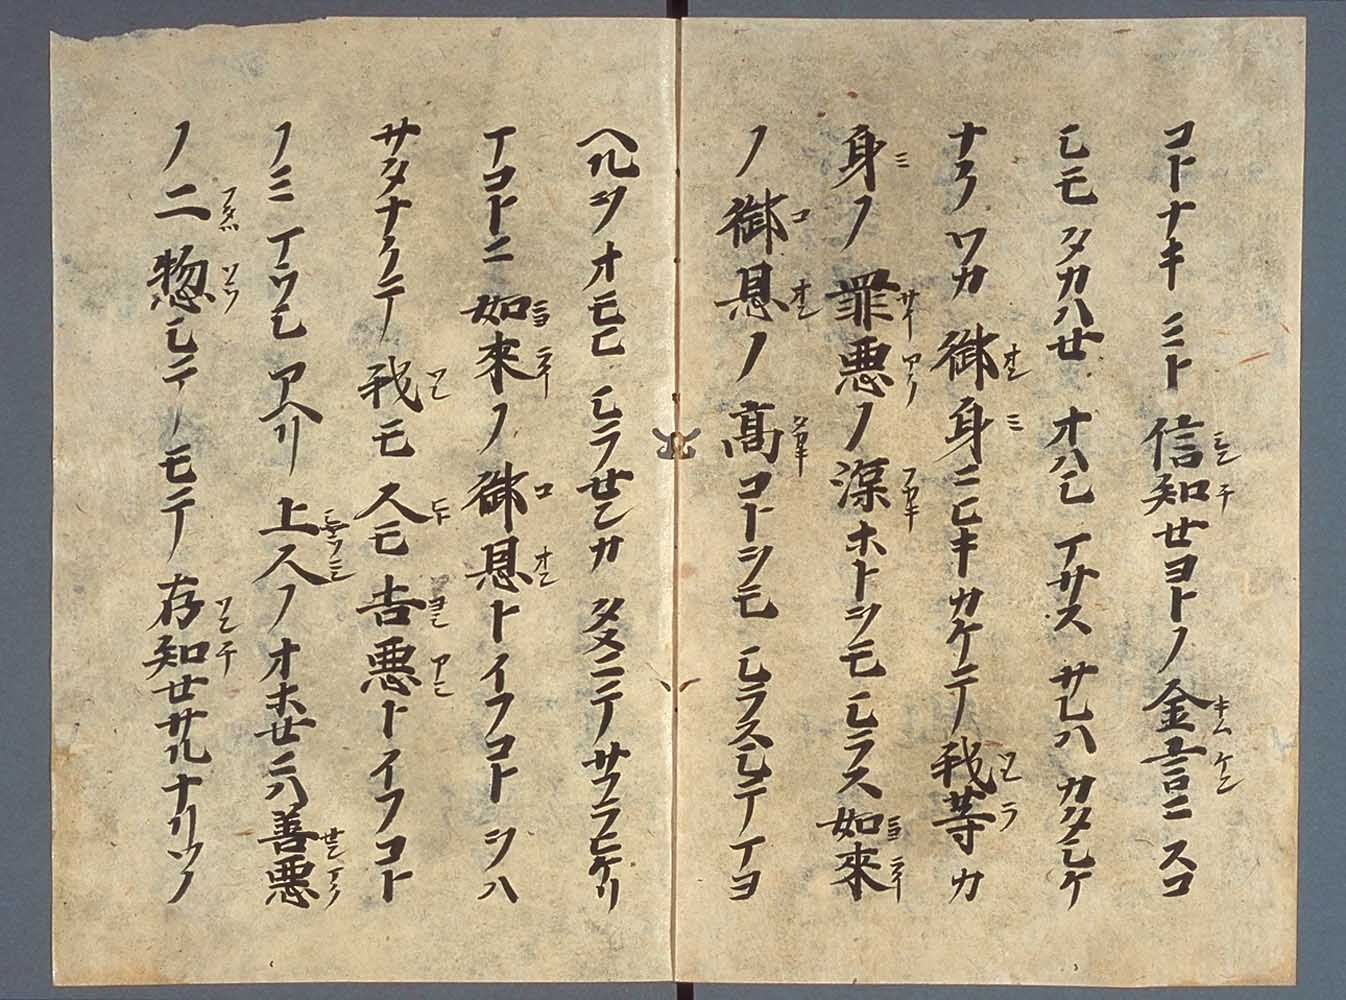 コトナキミト信知セヨトノ金言ニスコ
シモタカハセオハシマサスサレハカタシケ
ナクワカ御身ニヒキカケテ我等カ
身ノ罪悪ノ深ホトヲモシラス如來
ノ御恩ノ高コトヲモシラスシテマヨ
ヘルヲオモヒシラセンカタメニテサフラヒケリ
マコトニ如來ノ御恩トイフコトヲハ
サタナクテ我モ人モ吉悪トイフコト
ノミマウシアヘリ上人ノオホセニハ善悪
ノ二惣シテモテ存知セサルナリソノ